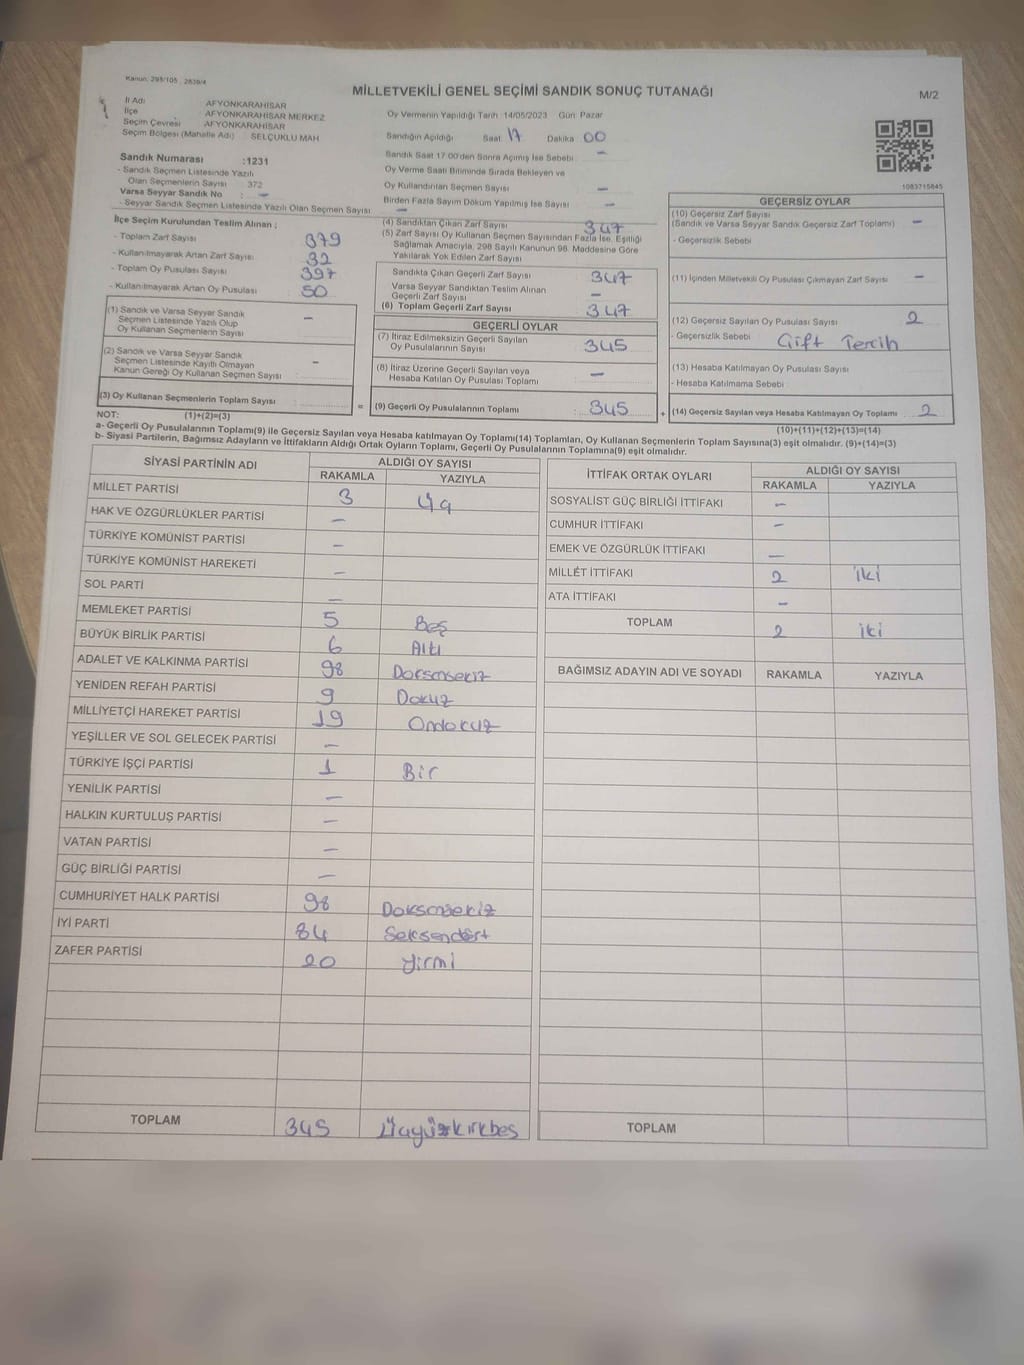 Kanun: 298/105 2839/4
MİLLETVEKİLİ GENEL SEÇİMİ SANDIK SONUÇ TUTANAĞI
M/2
İl Adı AFYONKARAHİSAR
İlçe AFYONKARAHİSAR MERKEZ
Seçim Çevresi AFYONKARAHİSAR
Seçim Bölgesi (Mahalle Adı) SELÇUKLU MAH
Sandık Numarası :1231
- Sandık Seçmen Listesinde Yazılı
Olan Seçmenlerin Sayısı 372
Varsa Seyyar Sandık No : -
- Seyyar Sandık Seçmen Listesinde Yazılı Olan Seçmen Sayısı -
Oy Vermenin Yapıldığı Tarih 14/05/2023 Gün Pazar
Sandığın Açıldığı Saat 17 Dakika 00
Sandık Saat 17:00'den Sonra Açılmış İse Sebebi -
Oy Verme Saati Bitiminde Sırada Bekleyen ve
Oy Kullandırılan Seçmen Sayısı -
Birden Fazla Sayım Döküm Yapılmış İse Sayısı -
1083715645
İlçe Seçim Kurulundan Teslim Alınan ;
- Toplam Zarf Sayısı 379
- Kullanılmayarak Artan Zarf Sayısı 32
- Toplam Oy Pusulası Sayısı 397
- Kullanılmayarak Artan Oy Pusulası 50
(1) Sandık ve Varsa Seyyar Sandık
Seçmen Listesinde Yazılı Olup
Oy Kullanan Seçmenlerin Sayısı -
(2) Sandık ve Varsa Seyyar Sandık
Seçmen Listesinde Kayıtlı Olmayan
Kanun Gereği Oy Kullanan Seçmen Sayısı -
(3) Oy Kullanan Seçmenlerin Toplam Sayısı =
(1)+(2)=(3)
(4) Sandıktan Çıkan Zarf Sayısı 347
(5) Zarf Sayısı Oy Kullanan Seçmen Sayısından Fazla İse, Eşitliği
Sağlamak Amacıyla, 298 Sayılı Kanunun 98. Maddesine Göre
Yakılarak Yok Edilen Zarf Sayısı
Sandıkta Çıkan Geçerli Zarf Sayısı 347
Varsa Seyyar Sandıktan Teslim Alınan
Geçerli Zarf Sayısı -
(6) Toplam Geçerli Zarf Sayısı 347
GEÇERLİ OYLAR
(7) İtiraz Edilmeksizin Geçerli Sayılan
Oy Pusulalarının Sayısı 345
(8) İtiraz Üzerine Geçerli Sayılan veya
Hesaba Katılan Oy Pusulası Toplamı -
(9) Geçerli Oy Pusulalarının Toplamı : 345 +
GEÇERSİZ OYLAR
(10) Geçersiz Zarf Sayısı
(Sandık ve Varsa Seyyar Sandık Geçersiz Zarf Toplamı) -
- Geçersizlik Sebebi
(11) İçinden Milletvekili Oy Pusulası Çıkmayan Zarf Sayısı -
(12) Geçersiz Sayılan Oy Pusulası Sayısı 2
- Geçersizlik Sebebi Çift Tercih
(13) Hesaba Katılmayan Oy Pusulası Sayısı
- Hesaba Katılmama Sebebi
(14) Geçersiz Sayılan veya Hesaba Katılmayan Oy Toplamı 2
(10)+(11)+(12)+(13)=(14)
NOT:
a- Geçerli Oy Pusulalarının Toplamı(9) ile Geçersiz Sayılan veya Hesaba katılmayan Oy Toplamı(14) Toplamları, Oy Kullanan Seçmenlerin Toplam Sayısına(3) eşit olmalıdır. (9)+(14)=(3)
b- Siyasi Partilerin, Bağımsız Adayların ve İttifakların Aldığı Ortak Oyların Toplamı, Geçerli Oy Pusulalarının Toplamına(9) eşit olmalıdır.
SİYASİ PARTİNİN ADI ALDIĞI OY SAYISI
RAKAMLA YAZIYLA
MİLLET PARTİSİ 3 Üç
HAK VE ÖZGÜRLÜKLER PARTİSİ -
TÜRKİYE KOMÜNİST PARTİSİ -
TÜRKİYE KOMÜNİST HAREKETİ -
SOL PARTİ -
MEMLEKET PARTİSİ 5 Beş
BÜYÜK BİRLİK PARTİSİ 6 Altı
ADALET VE KALKINMA PARTİSİ 98 Doksansekiz
YENİDEN REFAH PARTİSİ 9 Dokuz
MİLLİYETÇİ HAREKET PARTİSİ 19 Ondokuz
YEŞİLLER VE SOL GELECEK PARTİSİ -
TÜRKİYE İŞÇİ PARTİSİ 1 Bir
YENİLİK PARTİSİ -
HALKIN KURTULUŞ PARTİSİ -
VATAN PARTİSİ -
GÜÇ BİRLİĞİ PARTİSİ -
CUMHURİYET HALK PARTİSİ 98 Doksansekiz
İYİ PARTİ 84 Seksendört
ZAFER PARTİSİ 20 Yirmi
TOPLAM 345 Üçyüzkırkbeş
İTTİFAK ORTAK OYLARI ALDIĞI OY SAYISI
RAKAMLA YAZIYLA
SOSYALİST GÜÇ BİRLİĞİ İTTİFAKI -
CUMHUR İTTİFAKI -
EMEK VE ÖZGÜRLÜK İTTİFAKI -
MİLLET İTTİFAKI 2 iki
ATA İTTİFAKI -
TOPLAM 2 iki
BAĞIMSIZ ADAYIN ADI VE SOYADI RAKAMLA YAZIYLA
TOPLAM